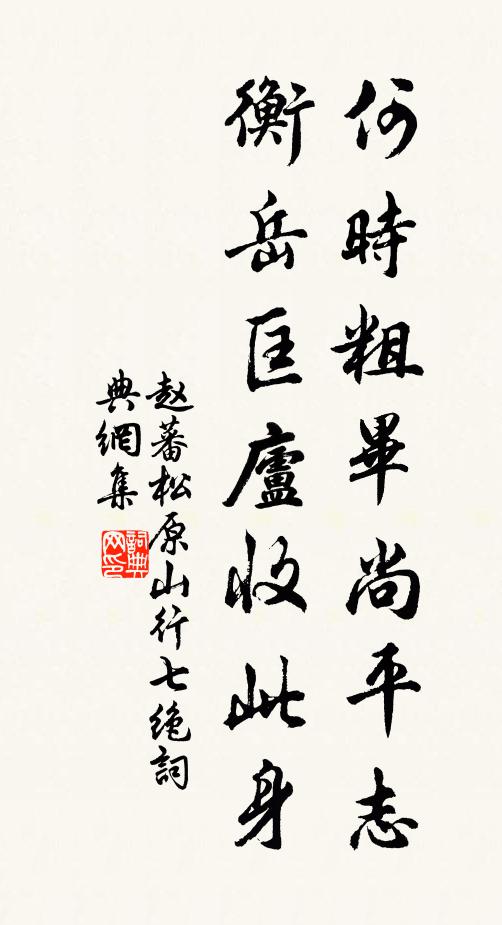 何時粗畢尚平志
衡岳匡廬收此身
赵蕃松原山行七绝詞
典網集
詞典网印